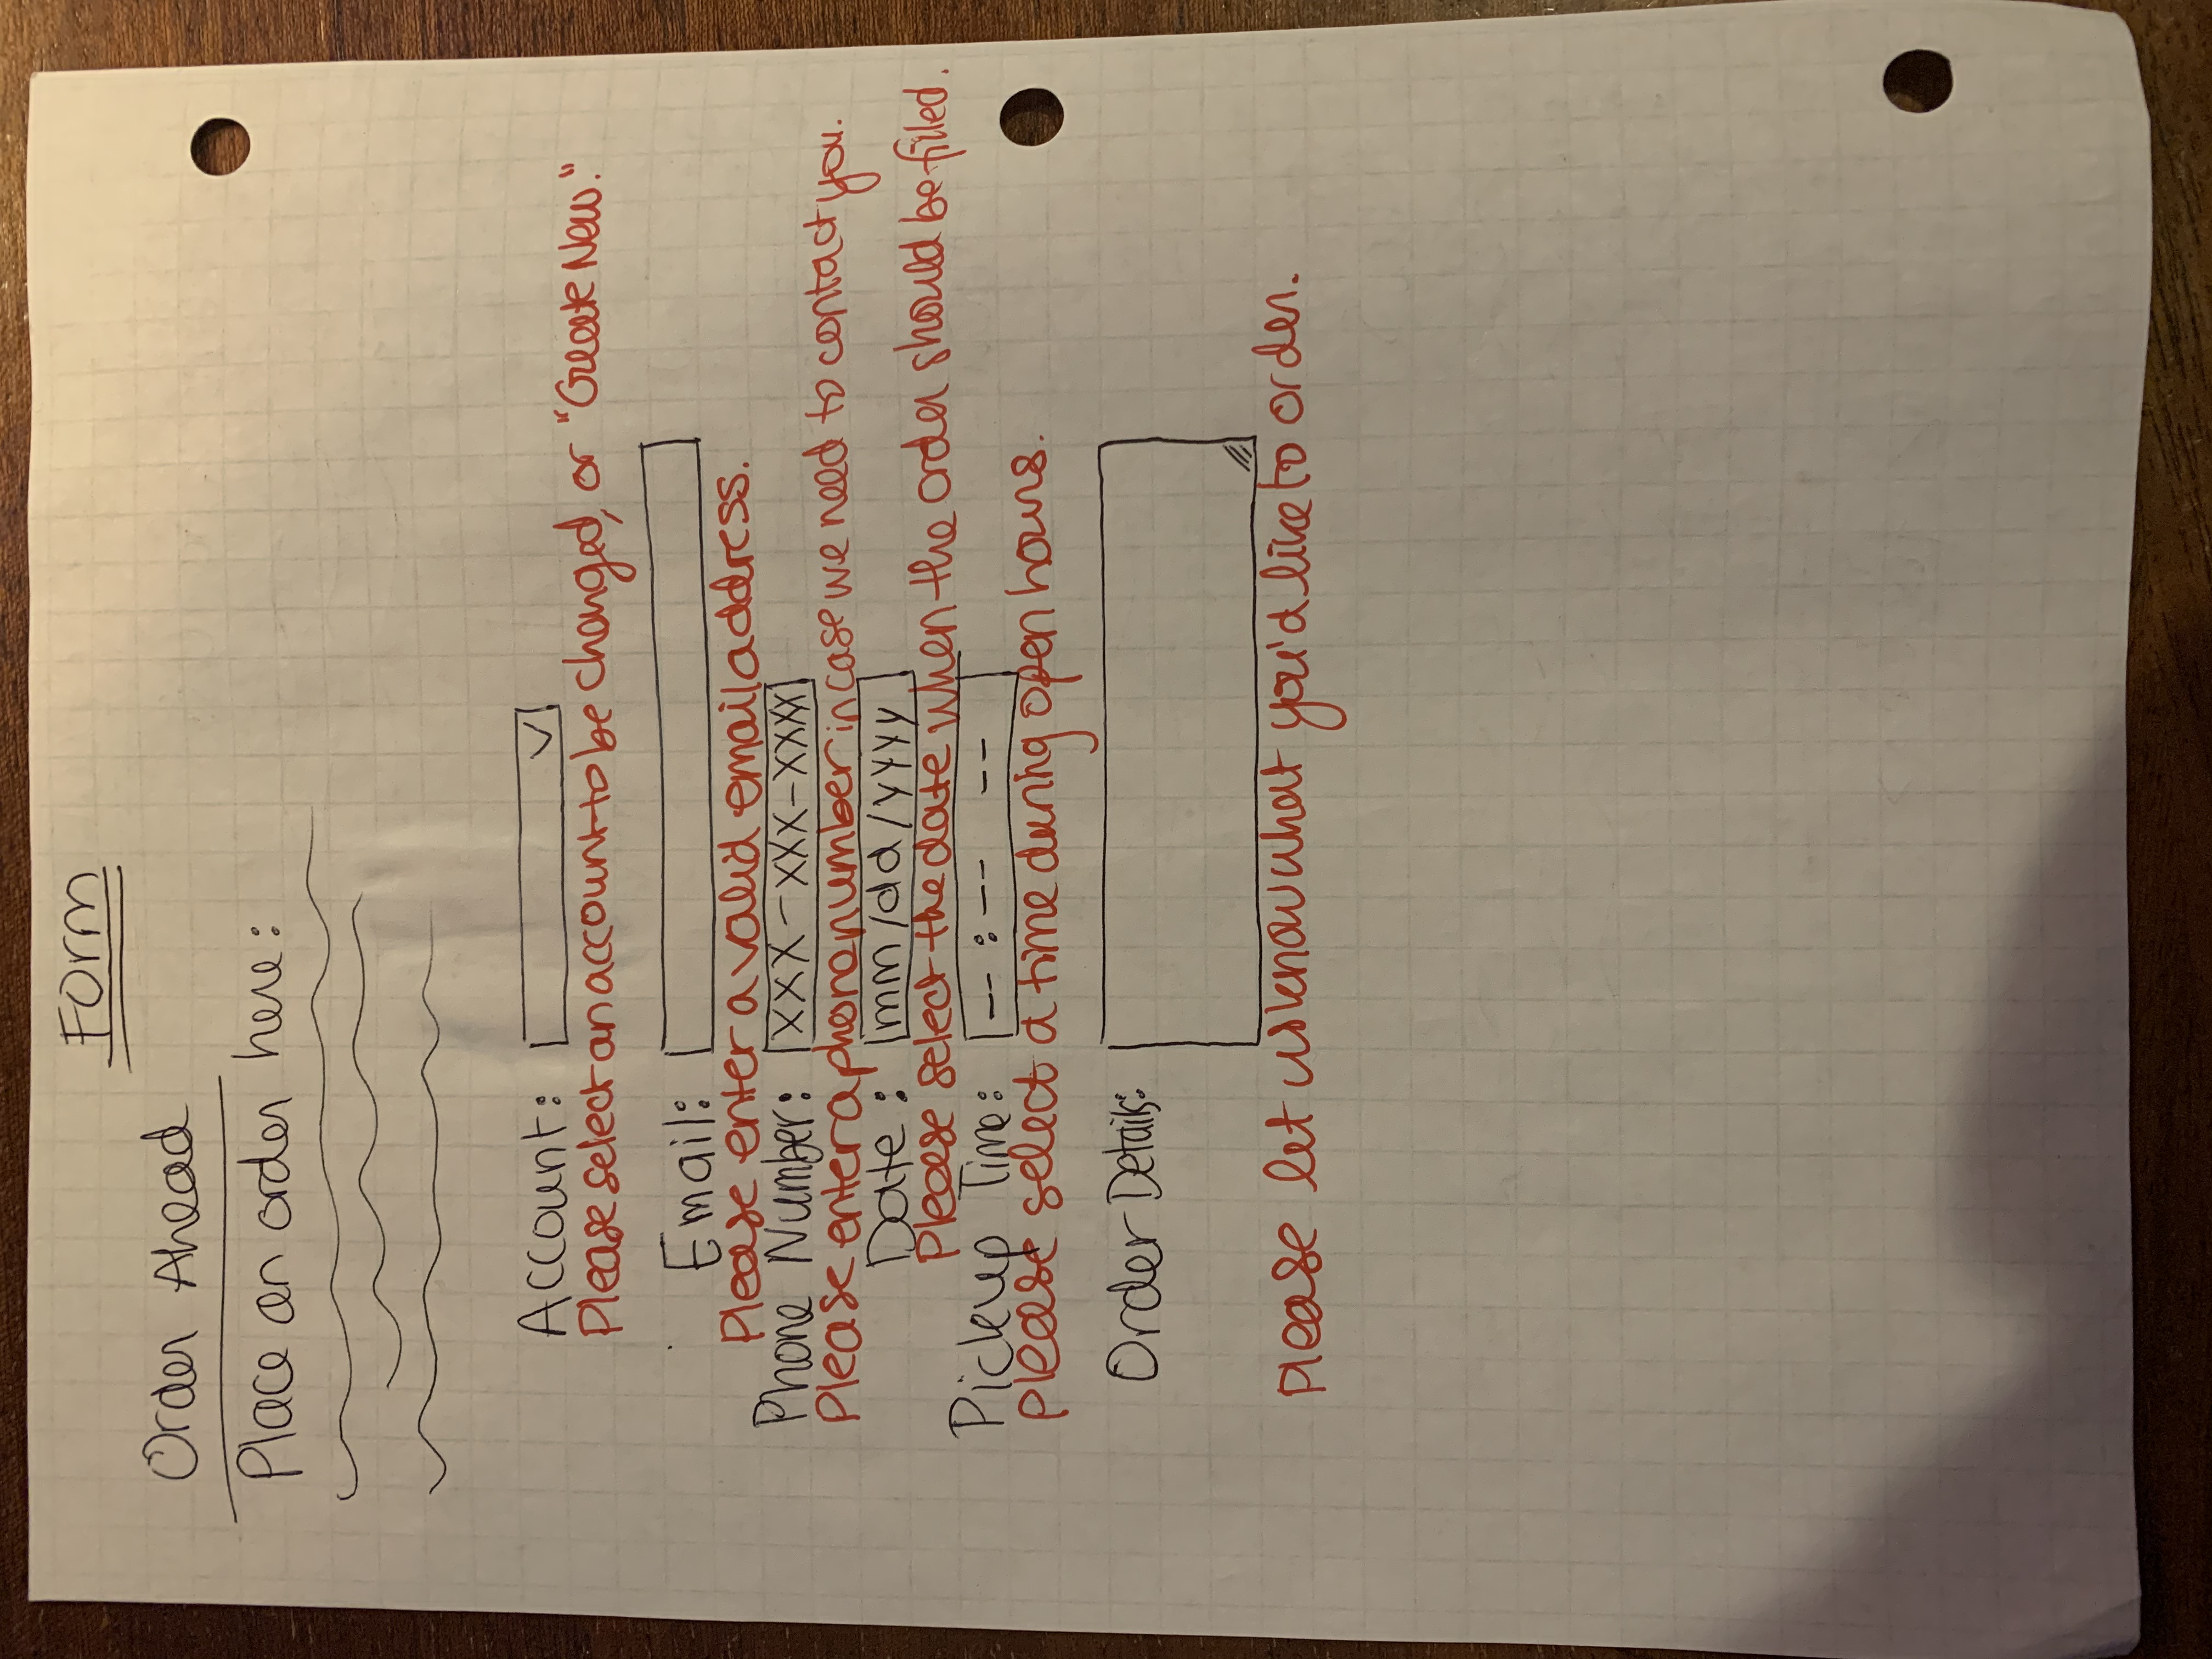 Form
Order Ahead
Place an order here:
Account:
Please select an account to be changed, or "Create New."
Email:
Please enter a valid email address.
Phone Number: XXX-XXX-XXXX
Please enter a phone number in case we need to contact you.
Date: mm/dd/yyyy
Please select the date when the order should be filled.
Pickup Time: --:-- --
Please select a time during open hours.
Order Details:
Please let us know what you'd like to order.